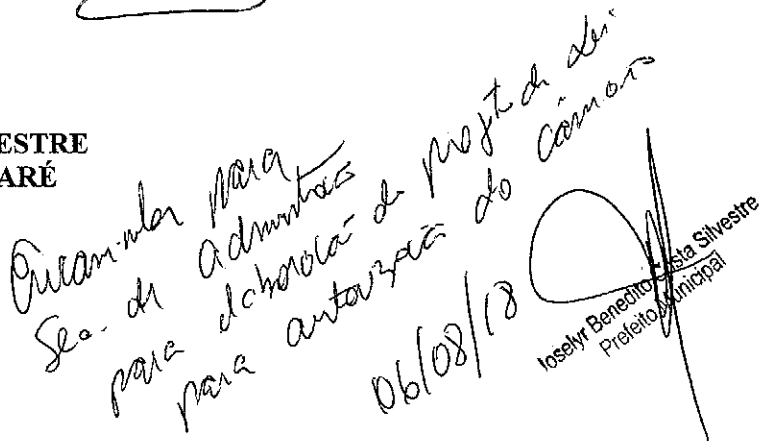 ESTRE
ARÉ
Encaminhar para
Sec. de Administração
para elaboração de projeto de Lei
para autorização da Câmara
06/08/18
Joselyr Benedito Costa Silvestre
Prefeito Municipal